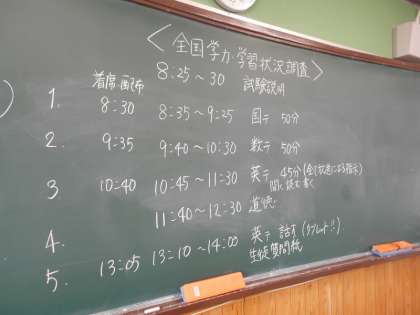 <全国学力・学習状況調査>
8:25～30 試験説明
着席・配布
1. 8:30 8:35～9:25 国語 50分
2. 9:35 9:40～10:30 数学 50分
3 10:40 10:45～11:30 英語 45分
聞く 読む 書く
4. 11:40～12:30 道徳
5. 13:05 13:10～14:00 英語 話す (タブレット!!)
生徒質問紙